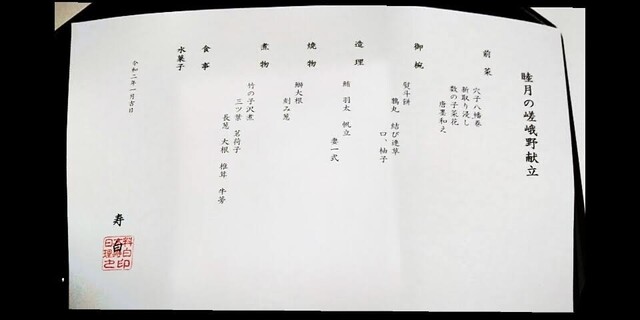 睦月の嵯峨野献立
前菜
穴子八幡巻
新取り浸し
数の子菜花
唐墨和え
御椀
熨斗餅
鶉丸 結び連草
口、柚子
造理
鮪 羽太 帆立
妻一式
焼物
鰤大根
刻み葱
煮物
竹の子沢煮
三ツ葉 茗荷子
長葱 大根 椎茸 牛蒡
食事
水菓子
令和二年一月吉日
寿
白